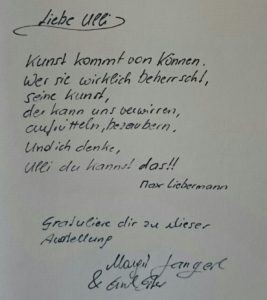 Liebe Ulli
Kunst kommt von Können.
Wer sie wirklich beherrscht,
seine Kunst,
der kann uns verwirren,
aufrütteln, bezaubern.
Und ich denke,
Ulli du kannst das!!
Max Liebermann
Gratuliere dir zu dieser
Ausstellung
Margit
&